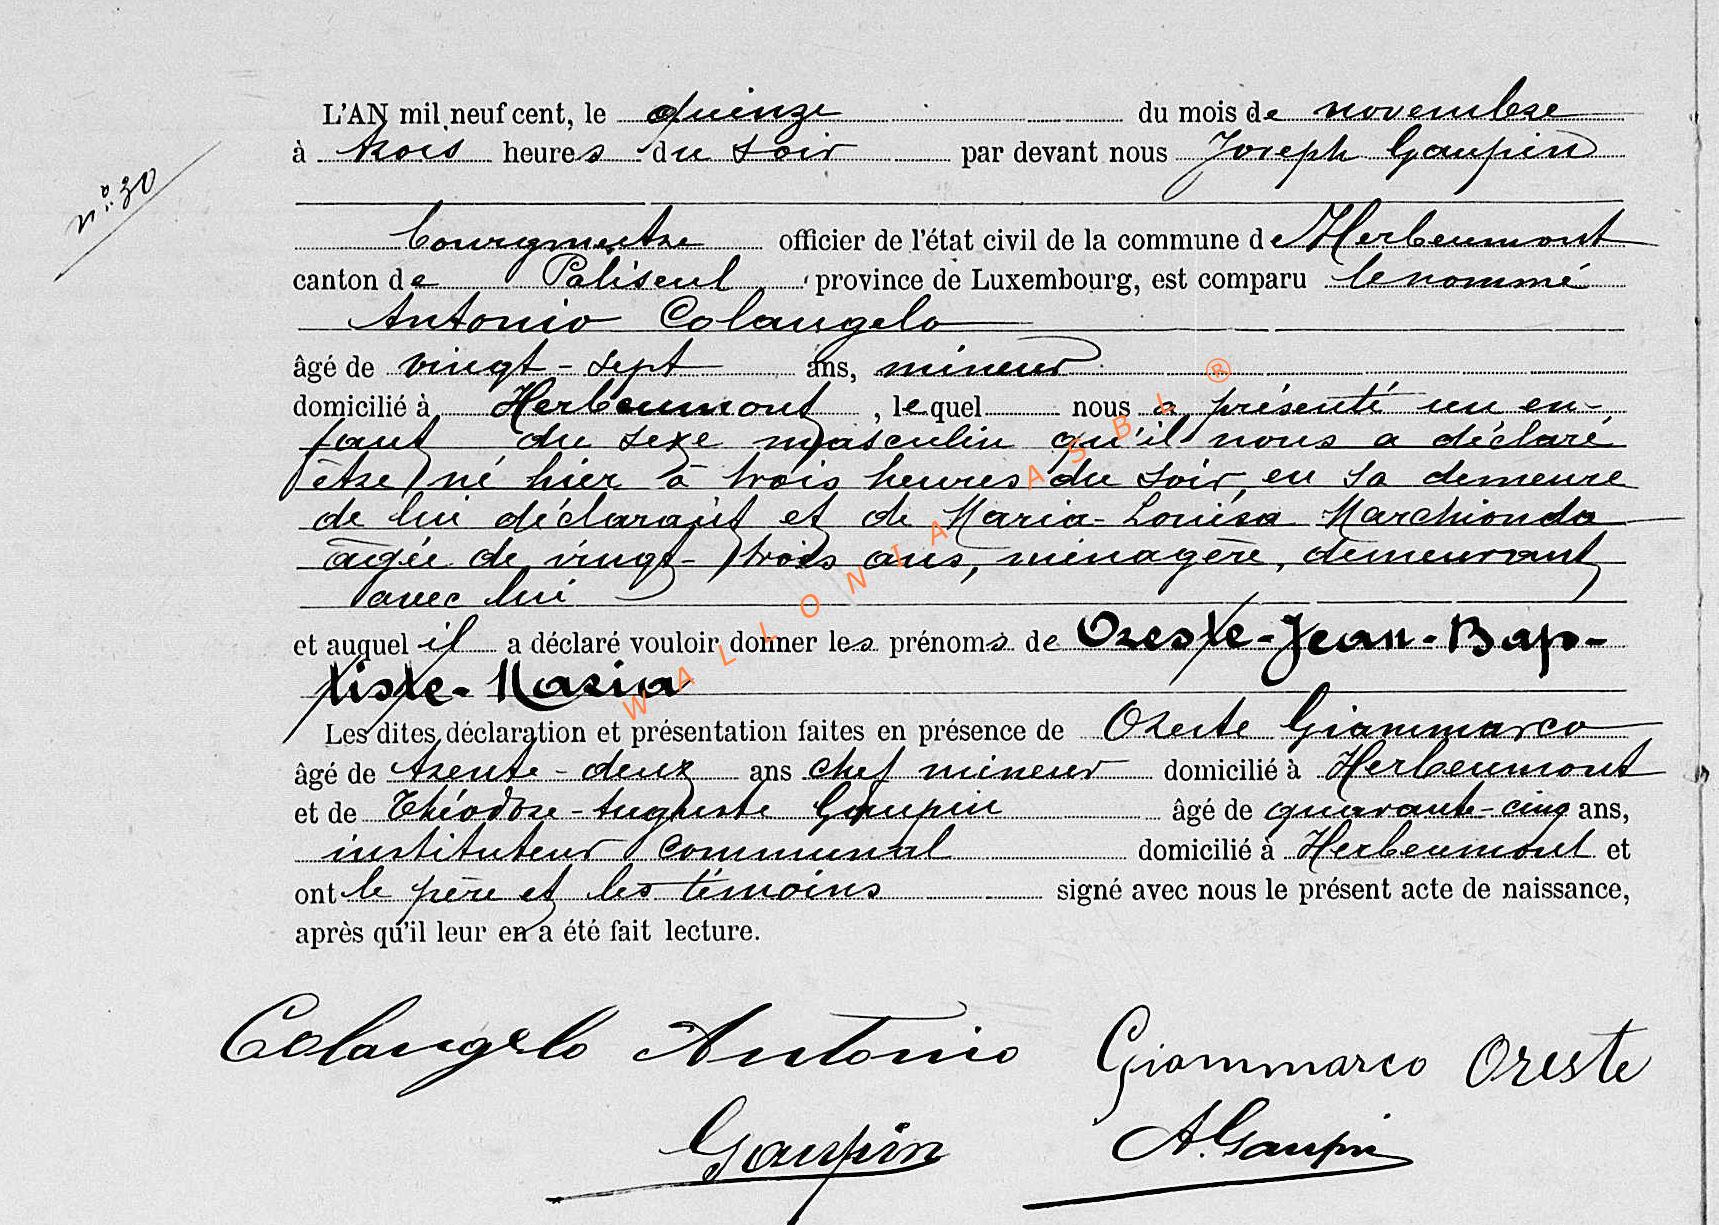 L'AN mil neuf cent, le quinze du mois de novembre
à trois heures du soir par devant nous Joseph Gaupin
n° 30
bourgmestre officier de l'état civil de la commune de Herbeumont
canton de Paliseul province de Luxembourg, est comparu le nommé
Antonio Colangelo
âgé de vingt-sept ans, mineur
domicilié à Herbeumont, lequel nous a présenté un en-
fant du sexe masculin qu'il nous a déclaré
être né hier à trois heures du soir, en sa demeure
de lui déclarant et de Maria-Louisa Marchionda
âgée de vingt-trois ans, ménagère, demeurant
avec lui
et auquel il a déclaré vouloir donner les prénoms de Oreste-Jean-Bap-
tiste-Maria
Les dites déclaration et présentation faites en présence de Oreste Giammarco
âgé de trente-deux ans chef mineur domicilié à Herbeumont
et de Théodore-Auguste Gaupin âgé de quarante-cinq ans,
instituteur communal domicilié à Herbeumont et
ont le père et les témoins signé avec nous le présent acte de naissance,
après qu'il leur en a été fait lecture.
Colangelo Antonio Giammarco Oreste
Gaupin A. Gaupin
WALLONIA ASBL ®